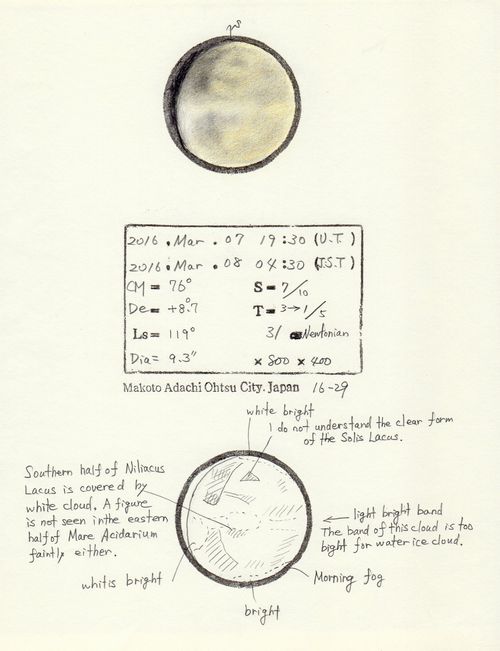 2016 . Mar . 07 19:30 (U.T.)
2016 . Mar . 08 04:30 (J.S.T)
CM = 76° S = 7/10
De = +8.7° T = 3→1/5
Ls = 119° 31 Newtonian
Dia = 9.3" × 800 × 400
Makoto Adachi Ohtsu City. Japan 16-29
white bright
I do not understand the clear form
of the Solis Lacus.
Southern half of Niliacus
Lacus is covered by
white cloud. A figure
is not seen in the eastern
half of Mare Acidarium
faintly either.
light bright band
The band of this cloud is too
bight for water ice cloud.
whitis bright
Morning fog
bright